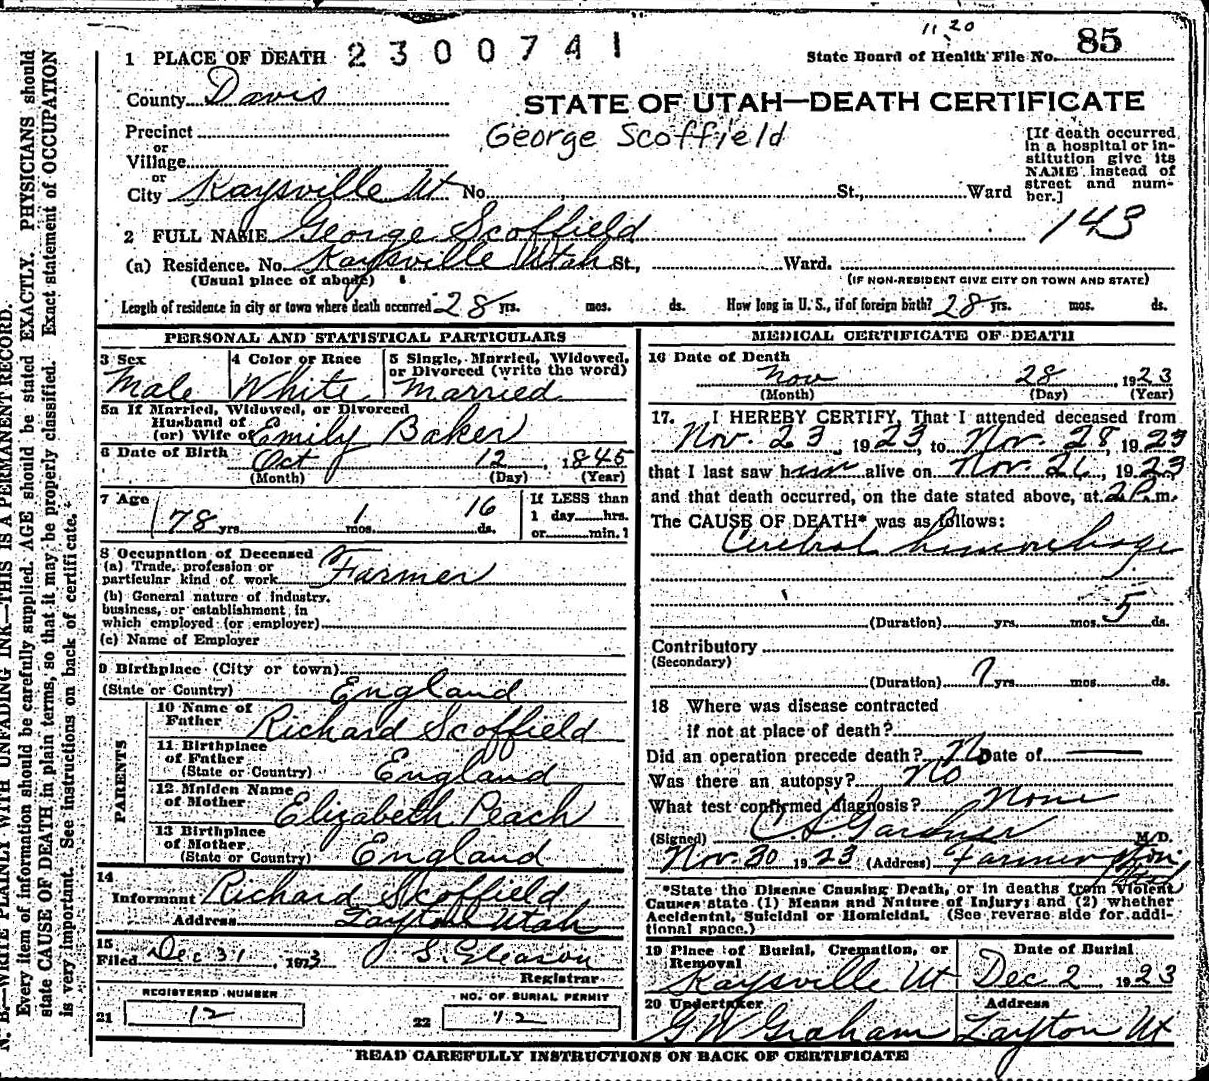 11 20
1 PLACE OF DEATH 2300741 State Board of Health File No. 85
County Davis
STATE OF UTAH—DEATH CERTIFICATE
Precinct
George Scoffield
or
Village
or
City Kaysville Ut No. St., Ward
[If death occurred
in a hospital or in-
stitution give its
NAME instead of
street and num-
ber.]
143
2 FULL NAME George Scoffield
(a) Residence. No. Kaysville Utah St., Ward.
(Usual place of abode) (IF NON-RESIDENT GIVE CITY OR TOWN AND STATE)
Length of residence in city or town where death occurred 28 yrs. mos. ds. How long in U. S., if of foreign birth? 28 yrs. mos. ds.
PERSONAL AND STATISTICAL PARTICULARS
3 Sex
Male
4 Color or Race
White
5 Single, Married, Widowed,
or Divorced (write the word)
Married
5a If Married, Widowed, or Divorced
Husband of
(or) Wife of Emily Baker
6 Date of Birth Oct 12, 1845
(Month) (Day) (Year)
7 Age
78 yrs. 1 mos. 16 ds.
If LESS than
1 day hrs.
or min.
8 Occupation of Deceased
(a) Trade, profession or
particular kind of work Farmer
(b) General nature of industry,
business, or establishment in
which employed (or employer)
(c) Name of Employer
9 Birthplace (City or town)
(State or Country) England
PARENTS
10 Name of
Father Richard Scoffield
11 Birthplace
of Father
(State or Country) England
12 Maiden Name
of Mother Elizabeth Peach
13 Birthplace
of Mother
(State or Country) England
14
Informant Richard Scoffield
Address Layton Utah
15
Filed Dec 31, 1923 S. Gleason
Registrar
REGISTERED NUMBER
21 12
NO. OF BURIAL PERMIT
22 12
MEDICAL CERTIFICATE OF DEATH
16 Date of Death
Nov 28, 1923
(Month) (Day) (Year)
17. I HEREBY CERTIFY, That I attended deceased from
Nov. 23, 1923, to Nov. 28, 1923
that I last saw him alive on Nov. 26, 1923
and that death occurred, on the date stated above, at 2 P. m.
The CAUSE OF DEATH* was as follows:
Cerebral hemorrhage
(Duration) yrs. mos. 5 ds.
Contributory
(Secondary)
(Duration) ? yrs. mos. ds.
18 Where was disease contracted
if not at place of death?
Did an operation precede death? No Date of
Was there an autopsy? No
What test confirmed diagnosis? None
(Signed) Gardner M.D.
Nov. 30 1923 (Address)
*State the Disease Causing Death, or in deaths from Violent
Causes state (1) Means and Nature of Injury; and (2) whether
Accidental, Suicidal or Homicidal. (See reverse side for addi-
tional space.)
19 Place of Burial, Cremation, or
Removal
Kaysville Ut
Date of Burial
Dec 2 1923
20 Undertaker
G W Graham
Address
Layton Ut
READ CAREFULLY INSTRUCTIONS ON BACK OF CERTIFICATE
N. B.—WRITE PLAINLY WITH UNFADING INK—THIS IS A PERMANENT RECORD.
Every item of information should be carefully supplied. AGE should be stated EXACTLY. PHYSICIANS should
state CAUSE OF DEATH in plain terms, so that it may be properly classified. Exact statement of OCCUPATION
is very important. See instructions on back of certificate.